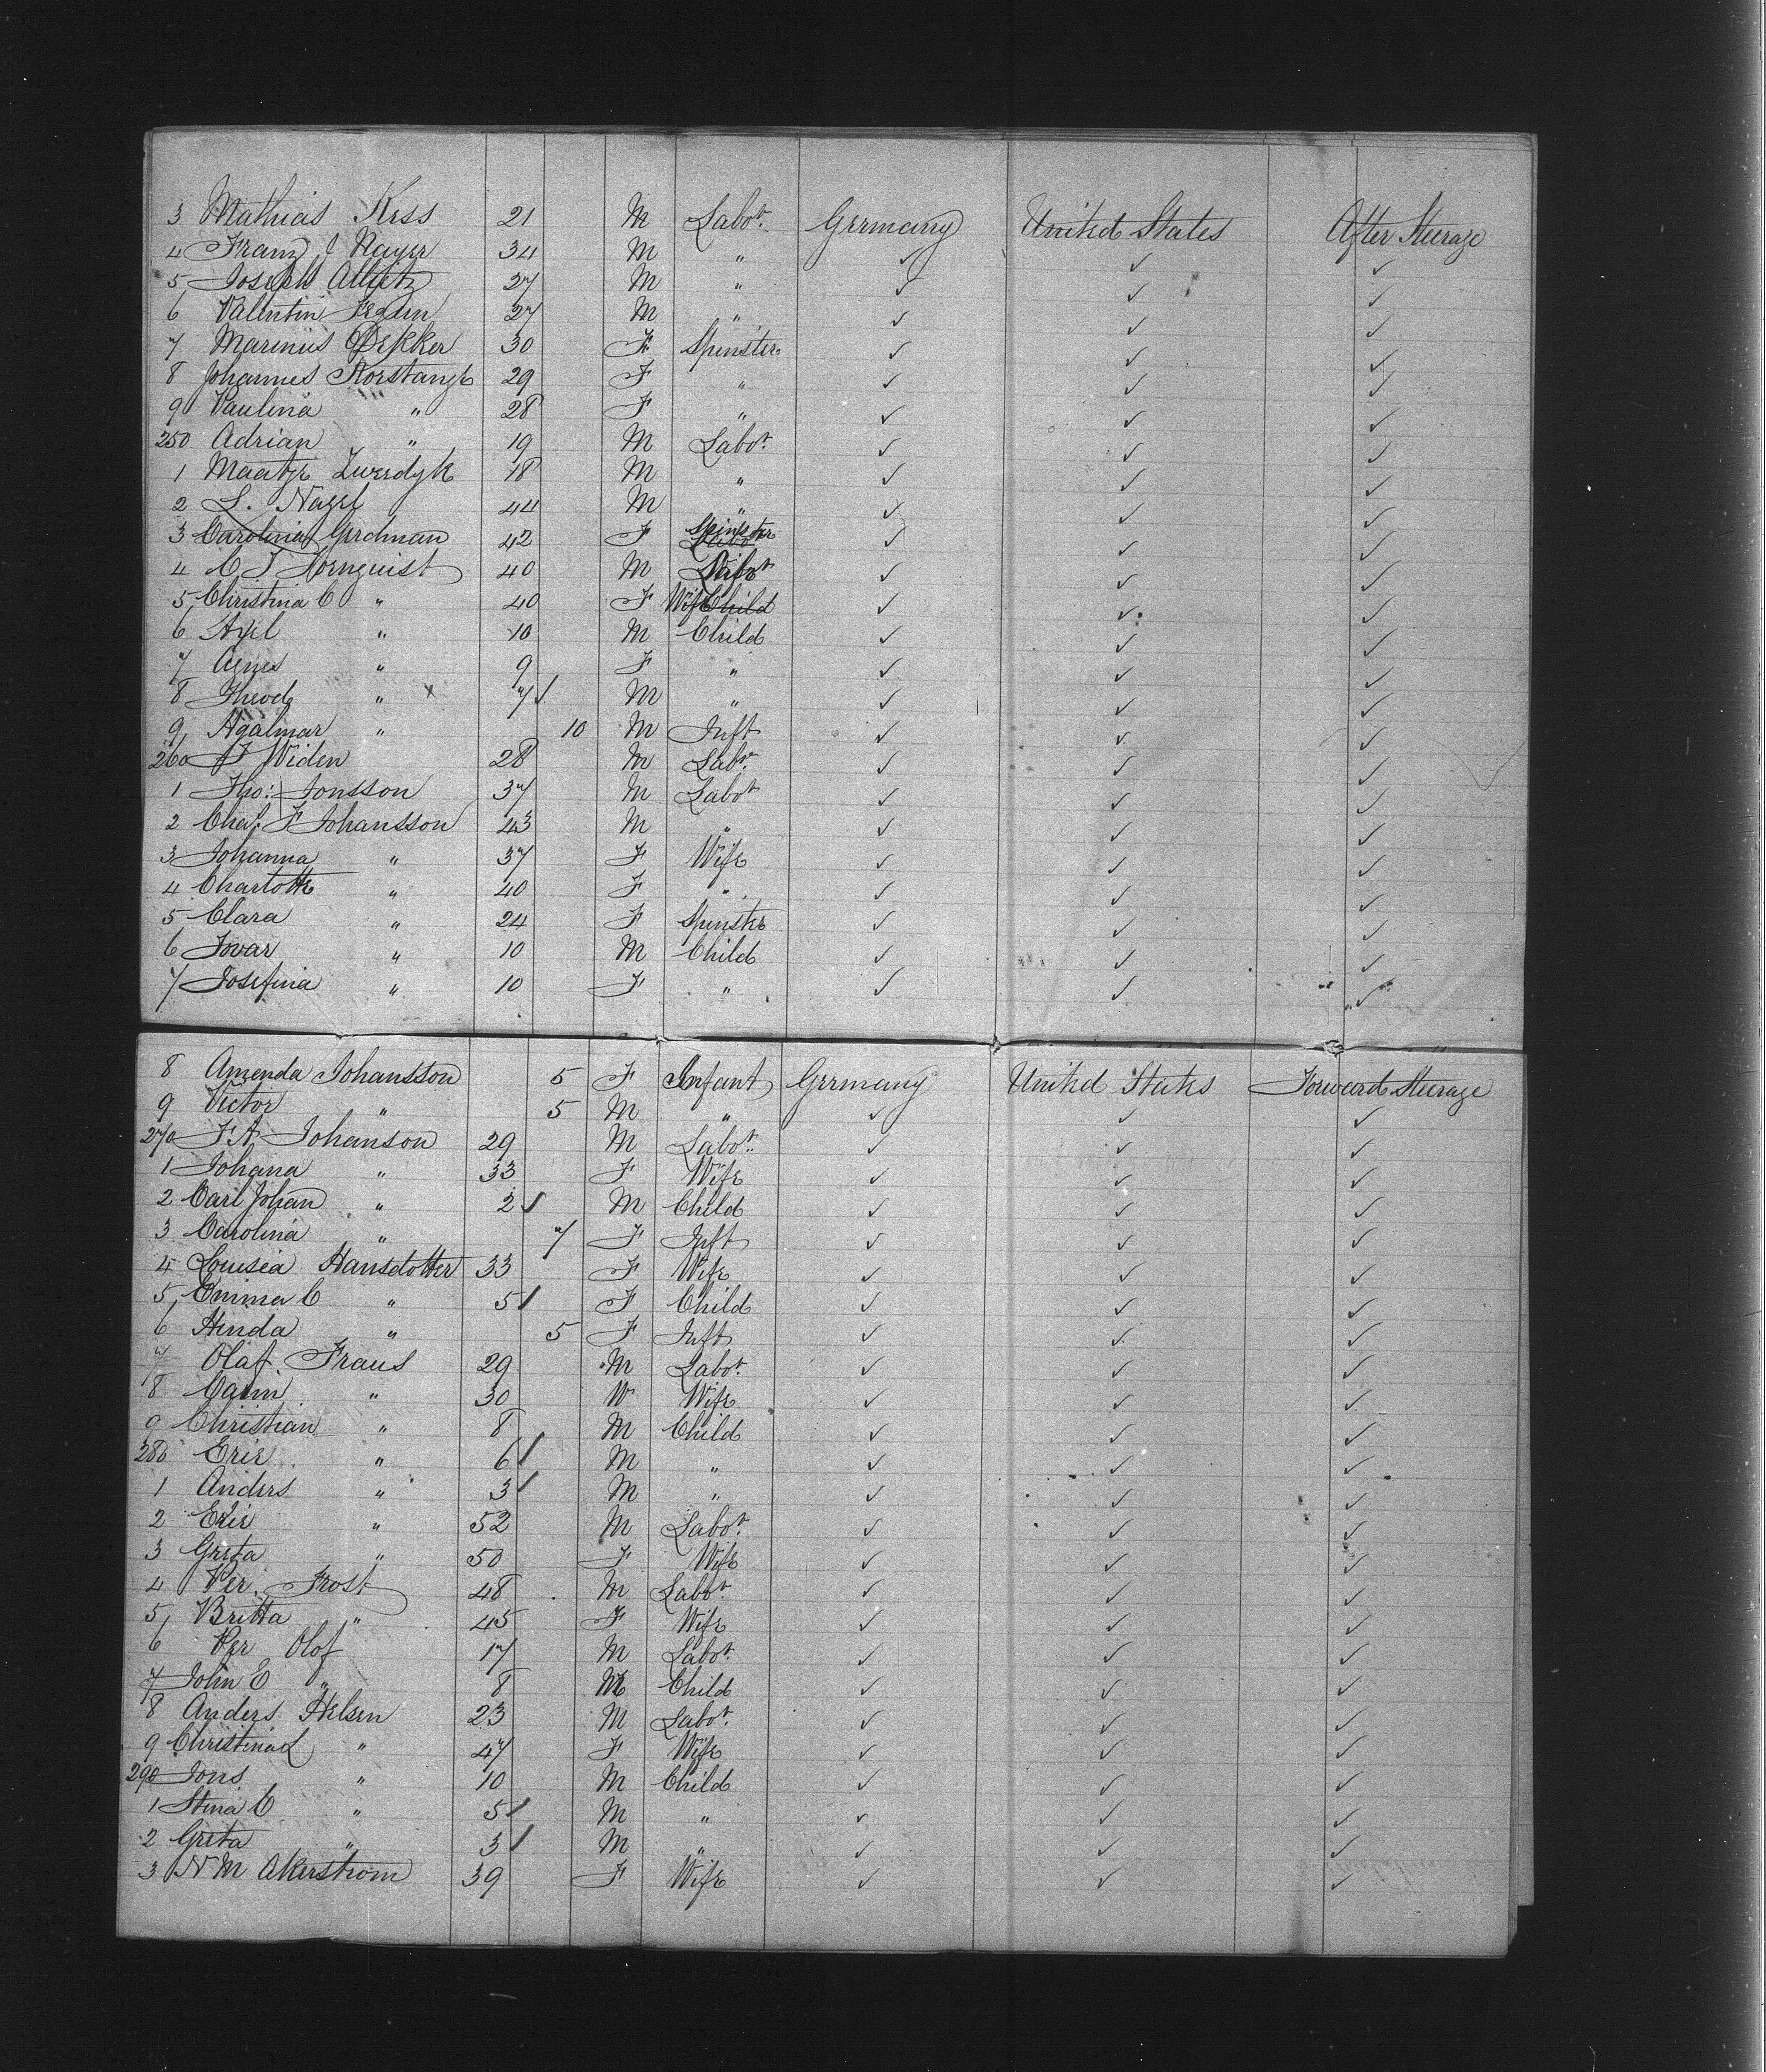 3 Mathias Kess 21 M Labor. Germany United States After Steerage
4 Franz J Nayer 34 M " ✓ ✓ ✓
5 Joseph 27 M " ✓ ✓ ✓
6 Valentin 27 M " ✓ ✓ ✓
7 Marinus Dekker 30 F Spinster ✓ ✓ ✓
8 Johannes Korstange 29 F " ✓ ✓ ✓
9 Paulina " 28 F " ✓ ✓ ✓
250 Adrian " 19 M Labor. ✓ ✓ ✓
1 Maatje Zwerdyk 18 M " ✓ ✓ ✓
2 L. Nagel 44 M " ✓ ✓ ✓
3 Carolina Gerdman 42 F Spinster ✓ ✓ ✓
4 C J Hornquist 40 M Labor ✓ ✓ ✓
5 Christina C " 40 F Wife Child ✓ ✓ ✓
6 Axel " 10 M Child ✓ ✓ ✓
7 Agnes " 9 F " ✓ ✓ ✓
8 Theod " x 7/ M " ✓ ✓ ✓
9 Hjalmar " 10 M Inft ✓ ✓ ✓
260 J Widen 28 M Labr. ✓ ✓ ✓
1 Tho: Jonsson 37 M Labor ✓ ✓ ✓
2 Chas. F Johansson 43 M " ✓ ✓ ✓
3 Johanna " 37 F Wife ✓ ✓ ✓
4 Charlotte " 40 F " ✓ ✓ ✓
5 Clara " 24 F Spinster ✓ ✓ ✓
6 Ivar " 10 M Child ✓ ✓ ✓
7 Josefina " 10 F " ✓ ✓ ✓
8 Amenda Johansson 5 F Infant Germany United States Forward Steerage
9 Victor " 5 M " ✓ ✓ ✓
270 F A Johanson 29 M Labor. ✓ ✓ ✓
1 Johana " 33 F Wife ✓ ✓ ✓
2 Carl Johan " 2/ M Child ✓ ✓ ✓
3 Carolina " 7 F Inft ✓ ✓ ✓
4 Louisia Hansdotter 33 F Wife ✓ ✓ ✓
5 Emma C " 5/ F Child ✓ ✓ ✓
6 Hinda " 5 F Inft ✓ ✓ ✓
7 Olaf Fraus 29 M Labor. ✓ ✓ ✓
8 Carin " 30 W Wife ✓ ✓ ✓
9 Christian " 8 M Child ✓ ✓ ✓
280 Eric " 6/ M " ✓ ✓ ✓
1 Anders " 3/ M " ✓ ✓ ✓
2 Eric " 52 M Labor. ✓ ✓ ✓
3 Greta " 50 F Wife ✓ ✓ ✓
4 Per. Frost 48 M Labor. ✓ ✓ ✓
5 Britta " 45 F Wife ✓ ✓ ✓
6 Per Olof 17 M Labor. ✓ ✓ ✓
7 John E " 8 M Child ✓ ✓ ✓
8 Anders Helsen 23 M Labor. ✓ ✓ ✓
9 Christina L " 47 F Wife ✓ ✓ ✓
290 Jons " 10 M Child ✓ ✓ ✓
1 Stina C " 5/ M " ✓ ✓ ✓
2 Greta " 3/ M " ✓ ✓ ✓
3 N M Akerstrom 39 F Wife ✓ ✓ ✓